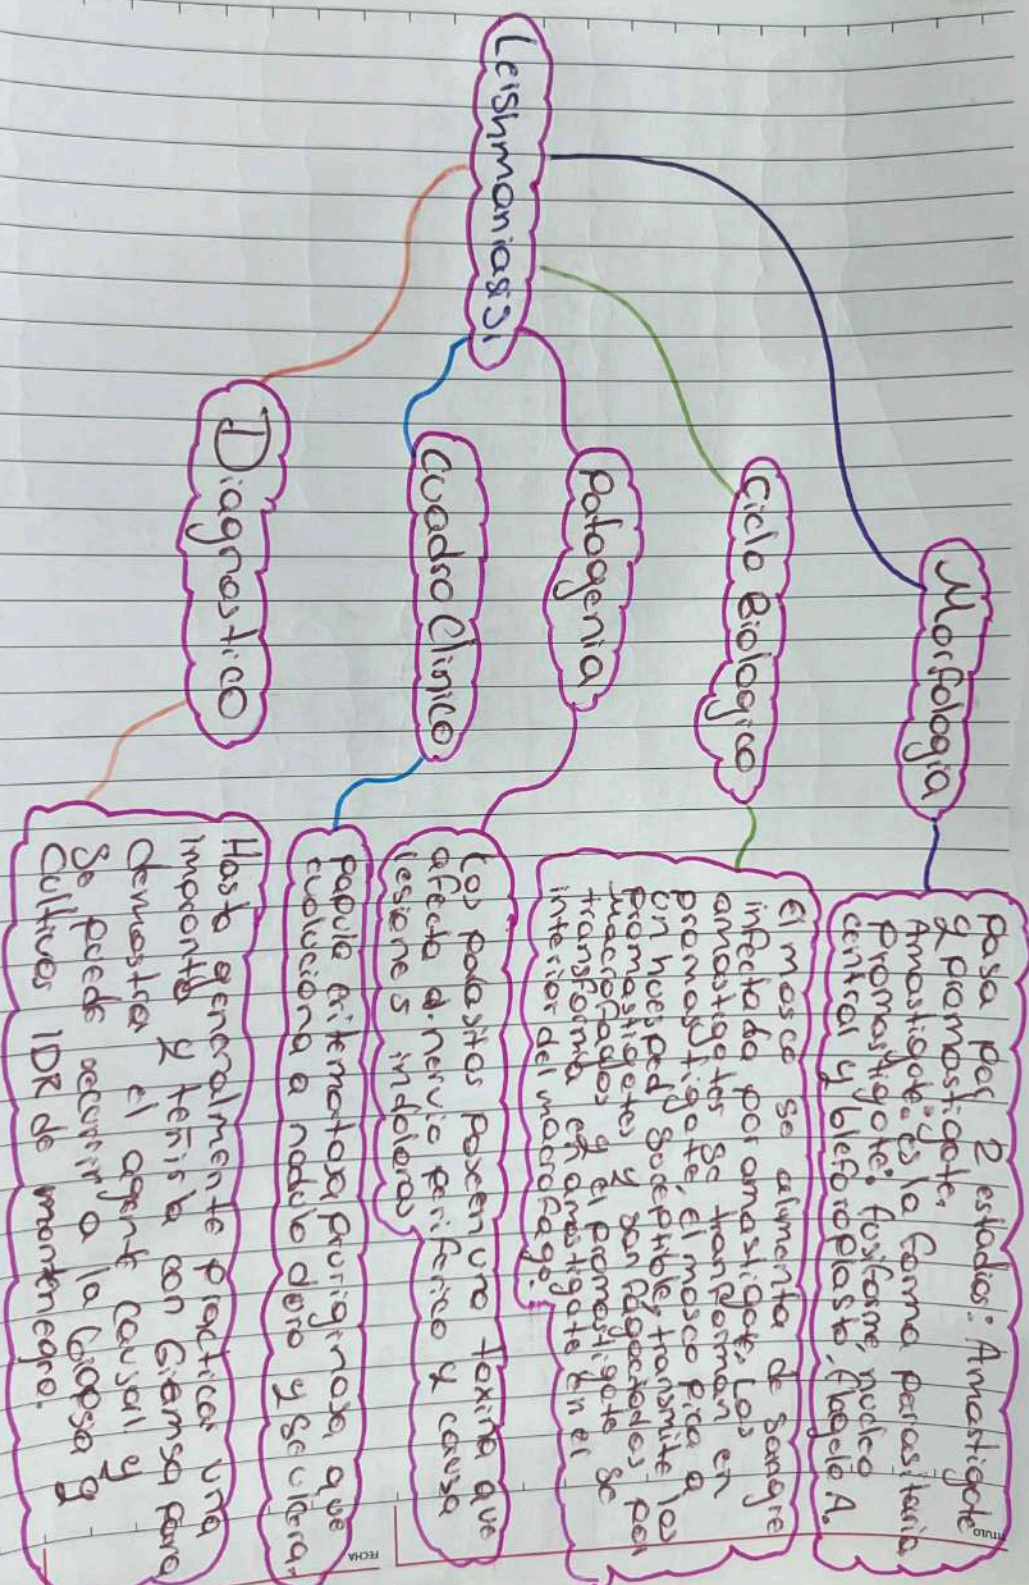 Leishmaniasis
Morfologia
Pasa por 2 estadios: Amastigote
y promastigote.
Amastigote: es la forma parasitaria
Promastigote: fusiforme, nucleo
central y blefaroplasto, flagelo A.
Ciclo Biologico
El mosco se alimenta de sangre
infectada por amastigote. Los
amastigotes se tranforman en
promastigote, el mosco pica a
un huesped suceptible, transmite los
promastigotes y son fagocitados por
macrofagos y el promastigote se
transforma en amastigote en el
interior del macrofago.
Patogenia
Los parasitos poxeen una toxina que
afecta a nervio periferico y causa
lesiones indoloras
Cuadro Clinico
Papula eritematosa pruriginosa, que
evoluciona a nodulo duro y se ulcera.
Diagnostico
Hasta generalmente practicar una
impronta y teñirla con Giemsa para
demostrar el agente causal y
Se puede recurrir a la biopsa y
Cultivos IDR de montenegro.
TITULO
FECHA